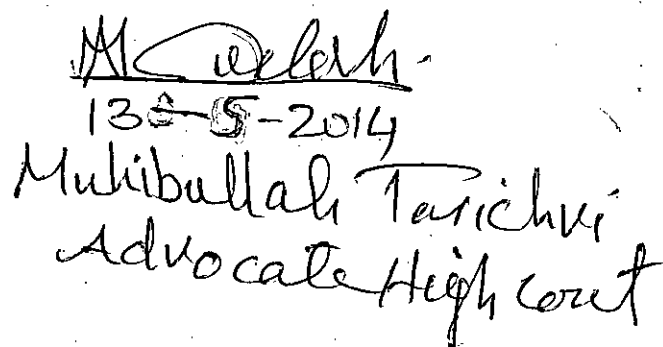 13-5-2014
Muhibullah Tarichvi
Advocate High Court